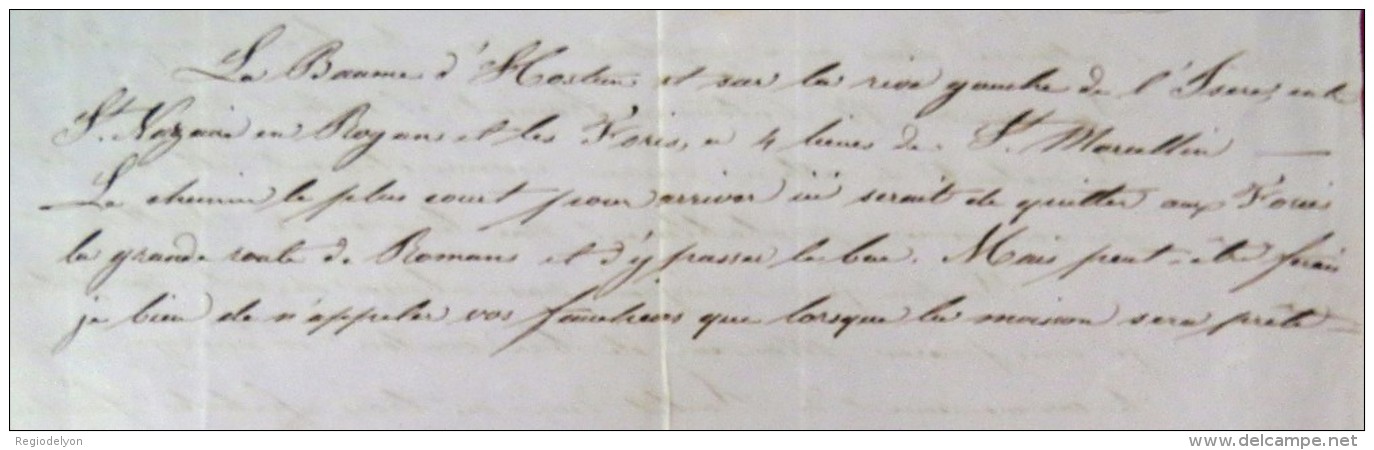 La Baume d'Hostun est sur la rive gauche de l'Isere, entre
St. Nazaire en Royans et les Foris, à 4 lieues de St Marcellin —
Le chemin le plus court pour arriver ici serait de quitter aux Foris
la grande route de Romans et d'y passer le bac. Mais peut-être ferais
je bien de n'appeler vos faucheurs que lorsque la maison sera prête —
Regiodelyon
www.delcampe.net